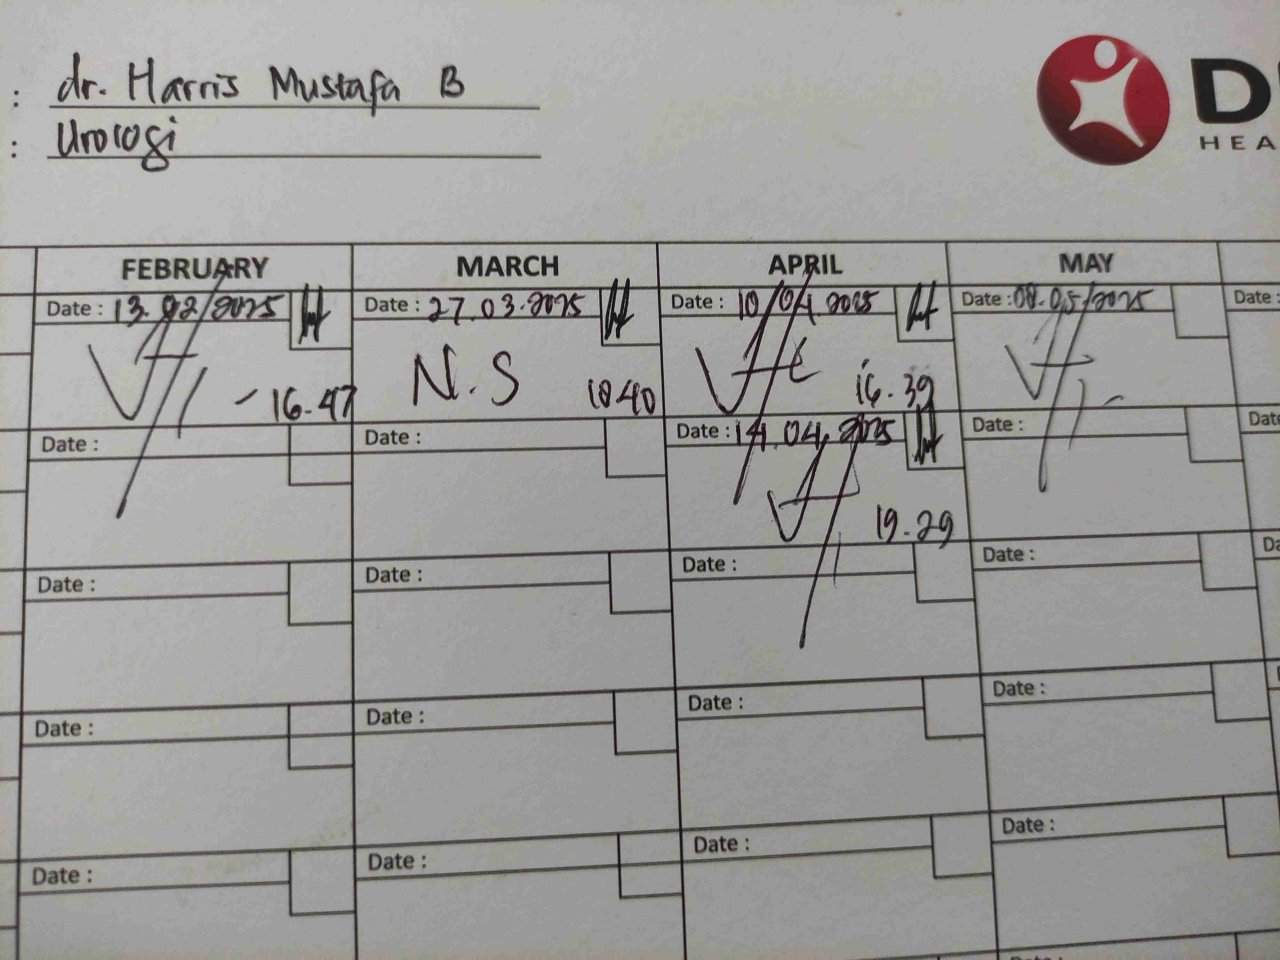 : dr. Harris Mustafa B
: Urologi
D
HEA
FEBRUARY MARCH APRIL MAY
Date : 13.02.2025 Date : 27.03.2025 Date : 10.04.2025 Date : 08.05.2025 Date :
16.47 N.S 18.40 16.39
Date : Date : Date : 14.04.2025 Date : Date
19.29
Date : Date : Date : Date : Da
Date : Date : Date : Date :
Date : Date : Date : Date :